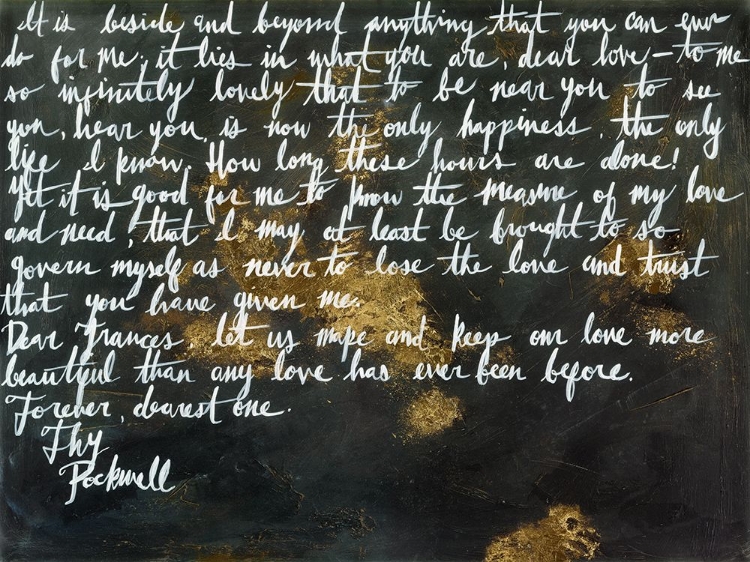 It is beside and beyond anything that you can ever
do for me; it lies in what you are, dear love - to me
so infinitely lovely that to be near you to see
you, hear you, is now the only happiness, the only
life I know. How long these hours are alone!
Yet it is good for me to know the measure of my love
and need, that I may at least be brought to so
govern myself as never to lose the love and trust
that you have given me.
Dear Frances, let us make and keep our love more
beautiful than any love has ever been before.
Forever, dearest one.
Thy
Rockwell